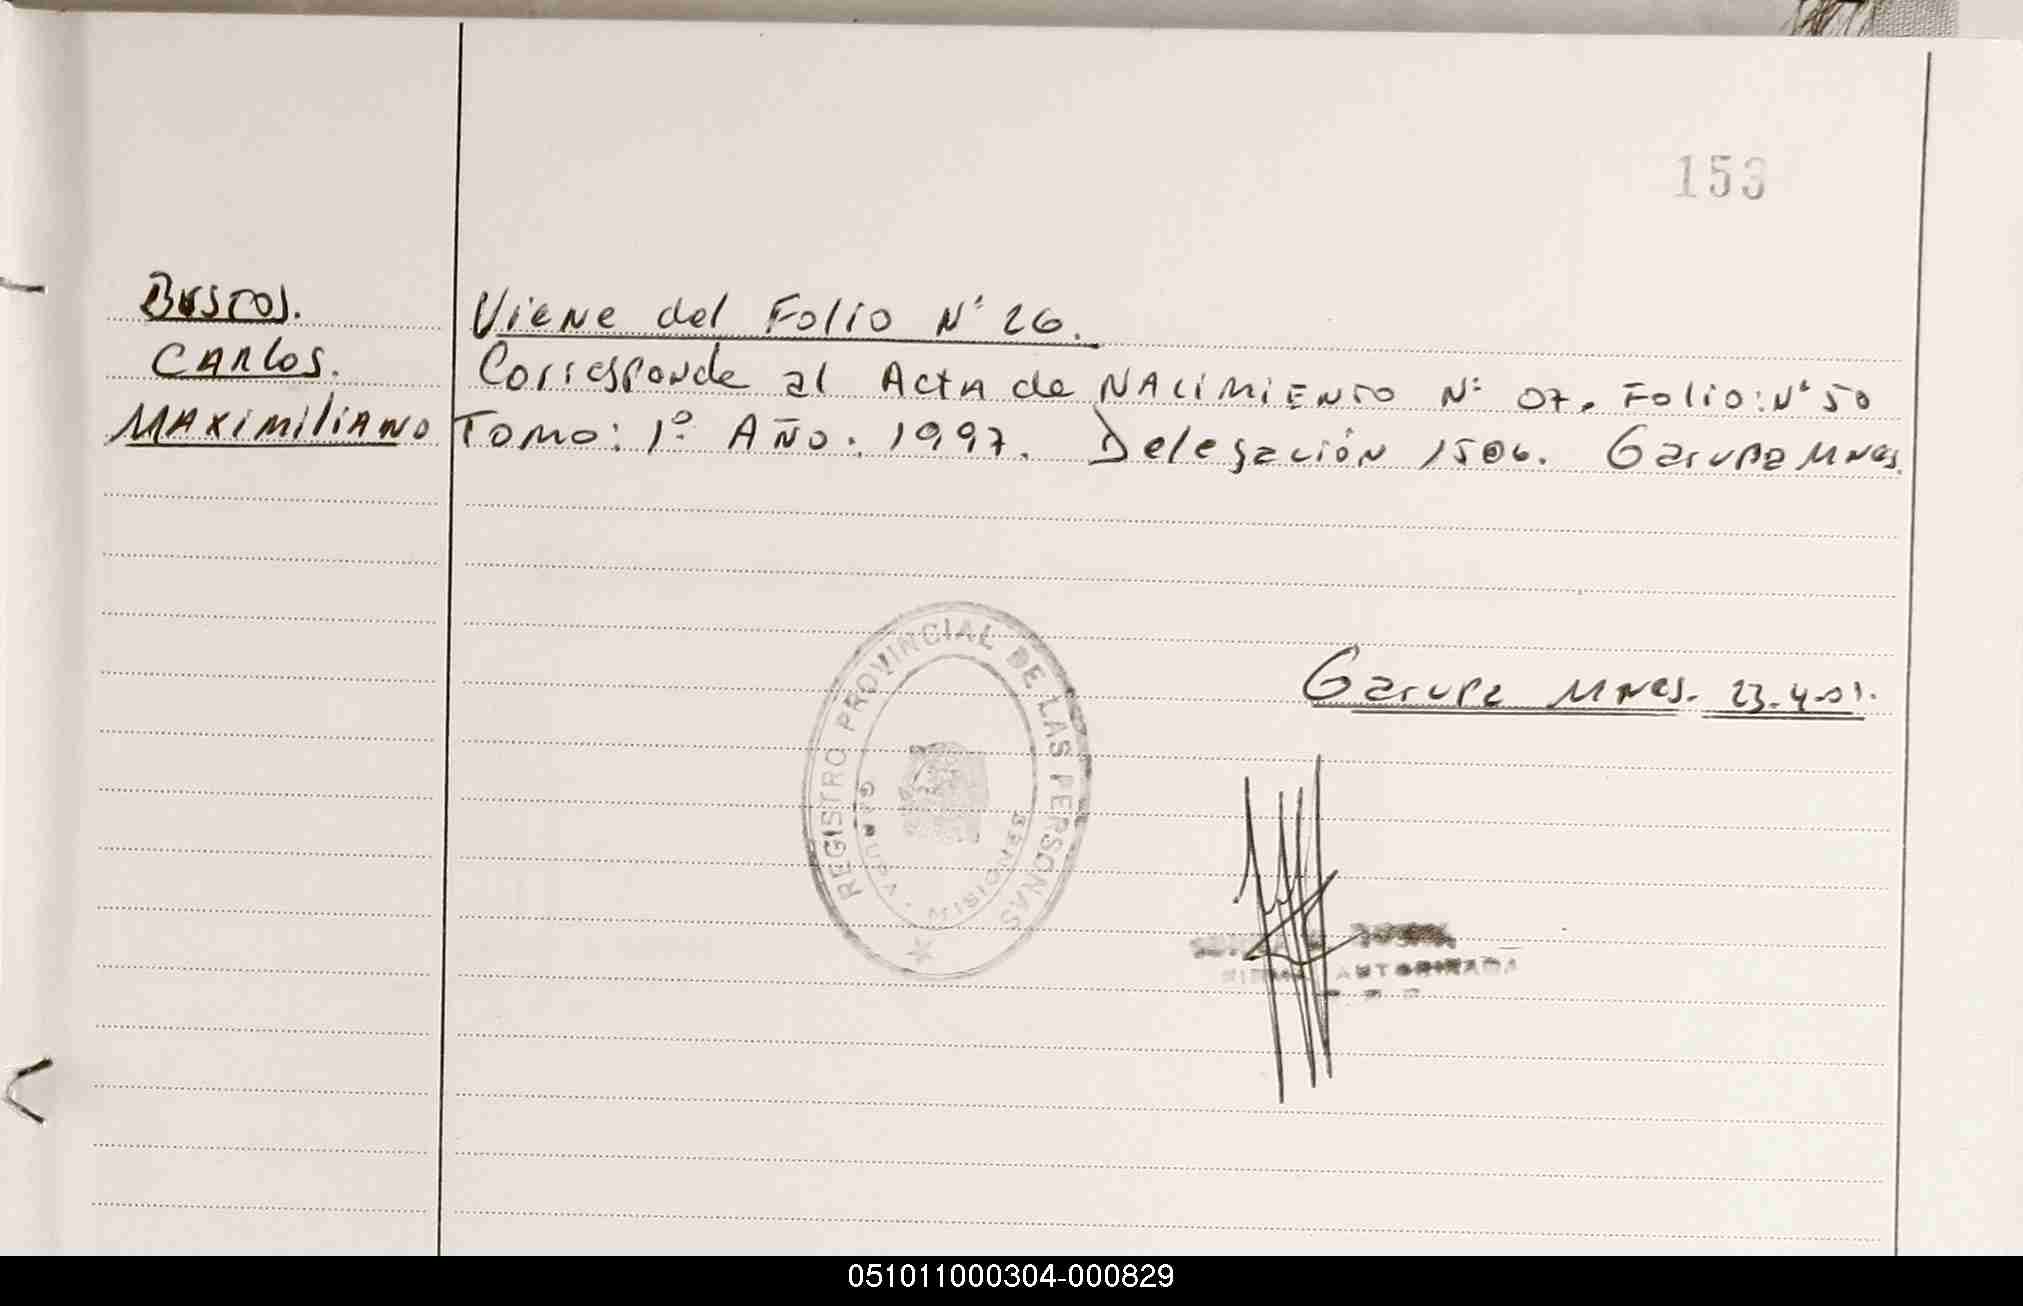 153
Bustos.
Carlos.
Maximiliano
Viene del Folio N° 26.
Corresponde al Acta de Nacimiento N° 07. Folio: N° 50
Tomo: 1° Año: 1997. Delegación 1506. Garupa Mnes.
REGISTRO PROVINCIAL DE LAS PERSONAS
GARUPA - MISIONES
Garupa Mnes. 23-4-01.
AUTORIZADA
051011000304-000829